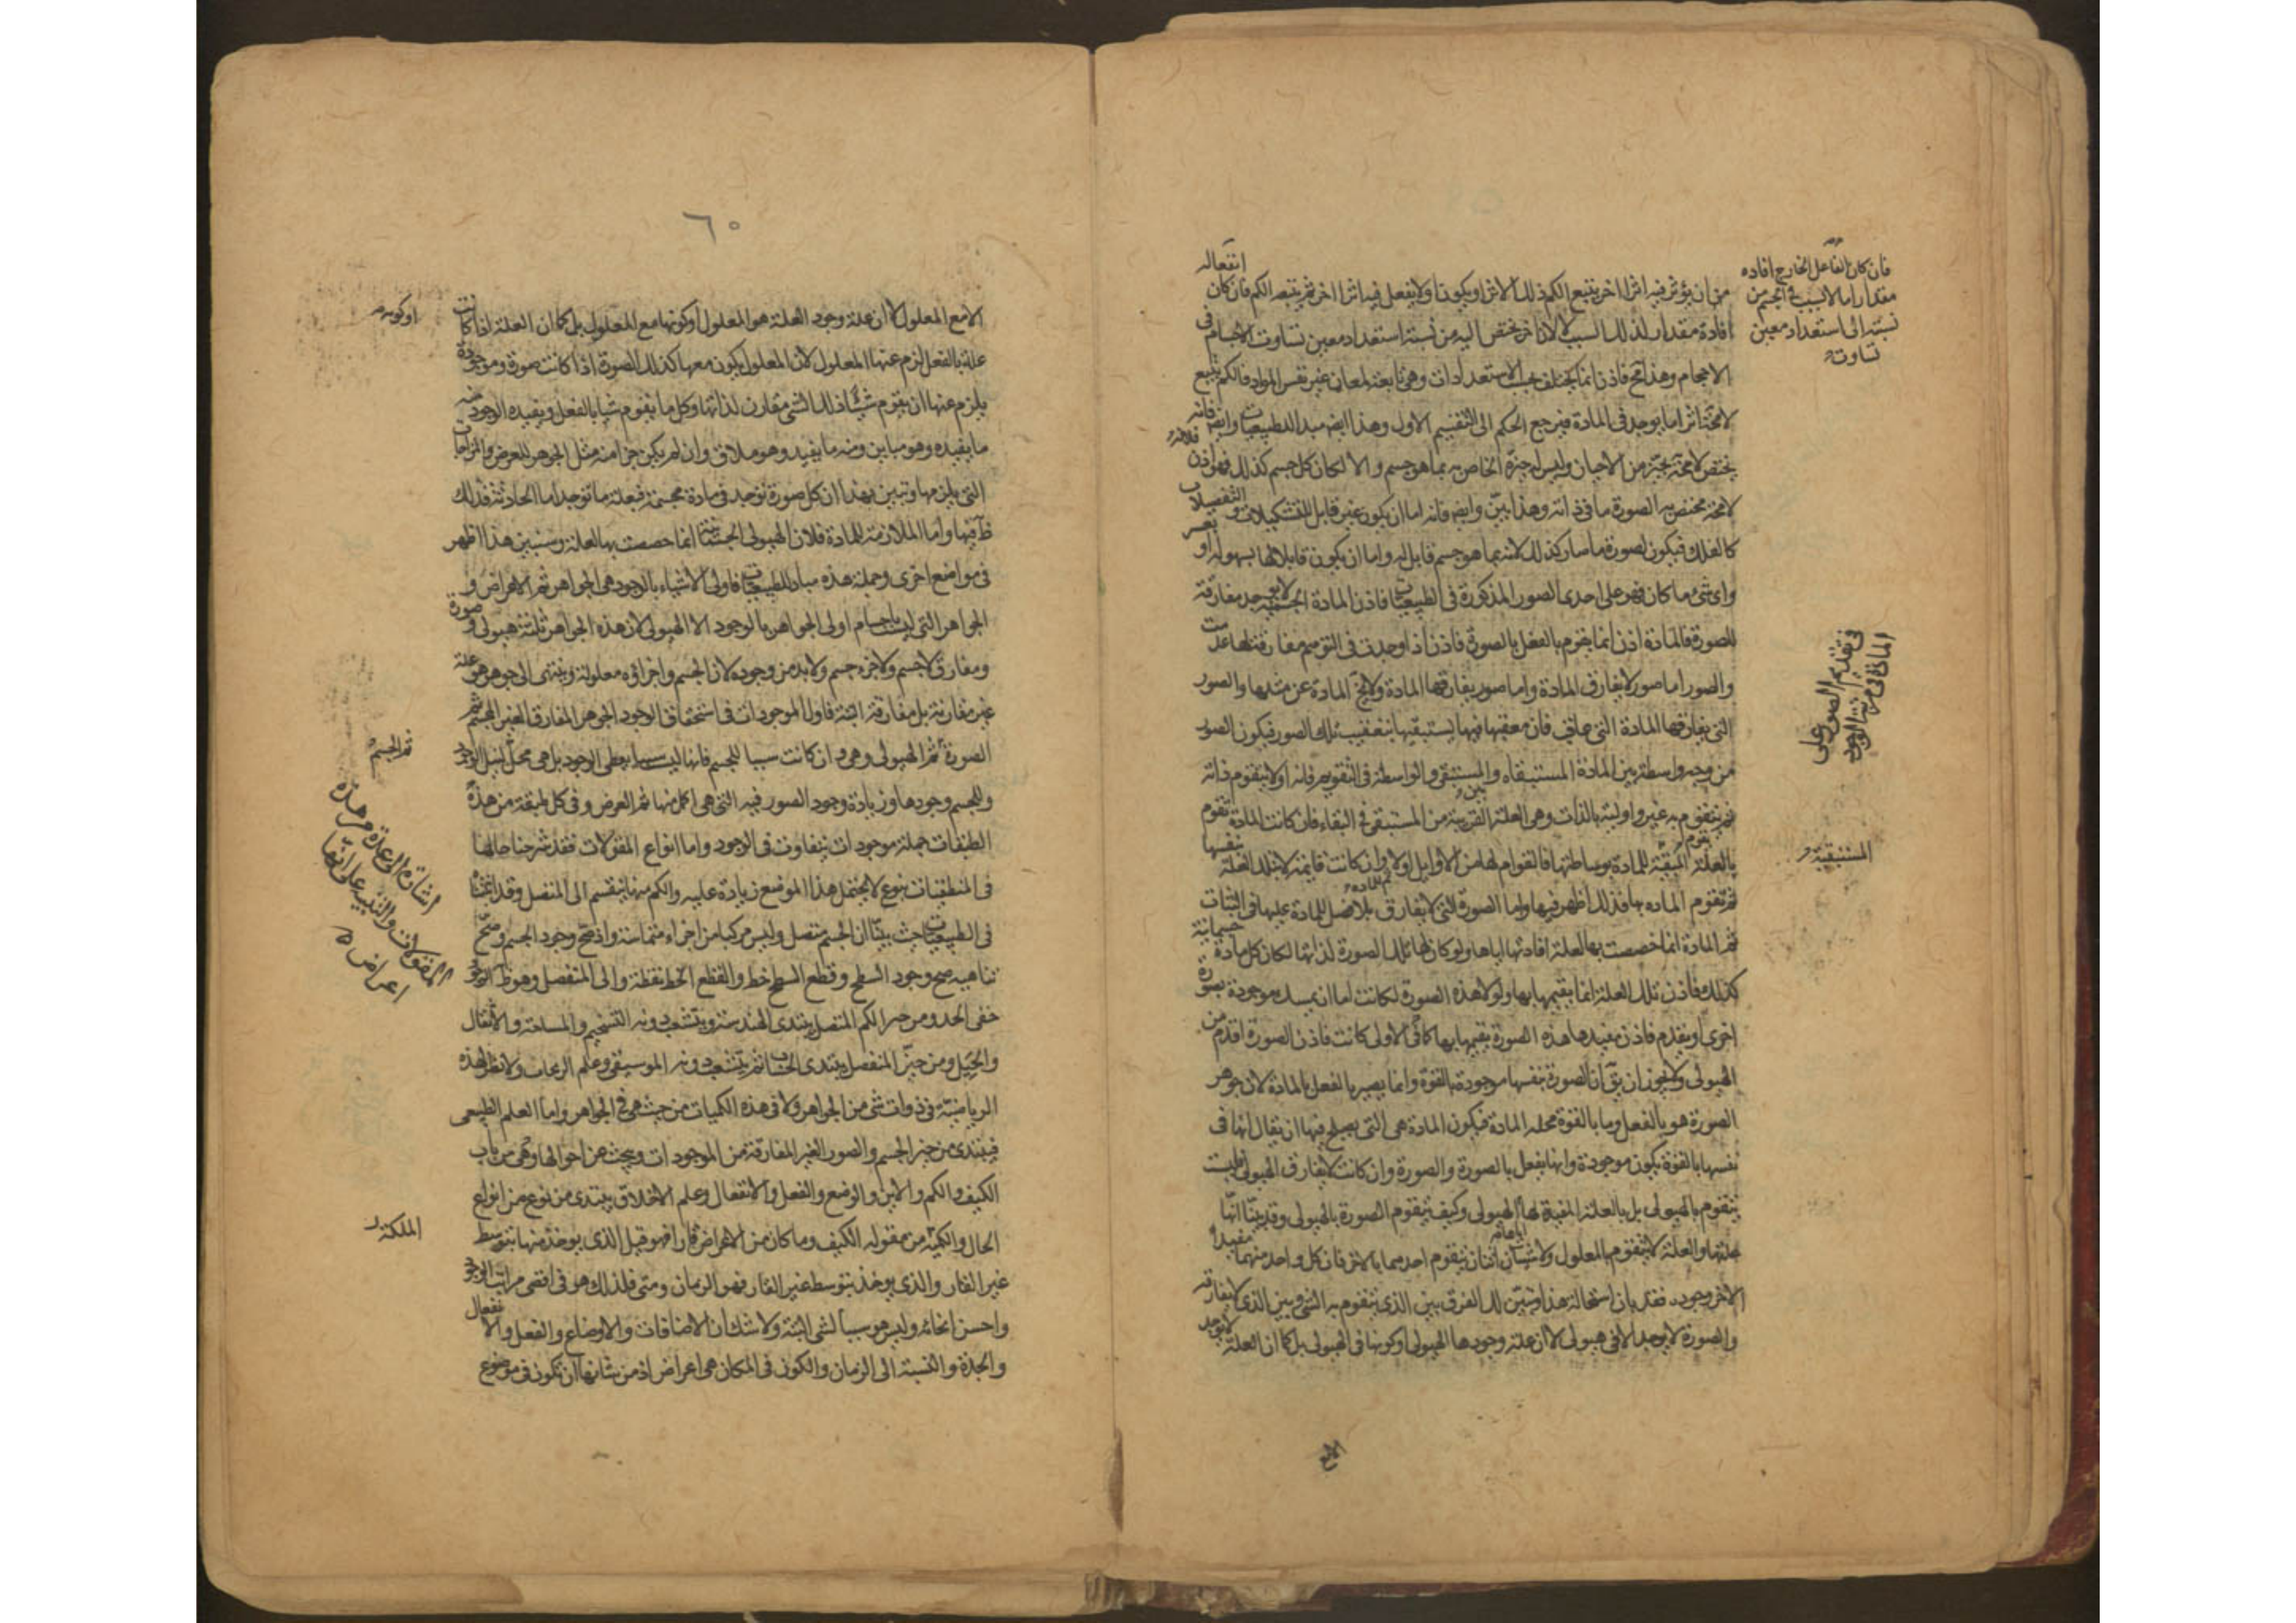 انفعاله
من ان يؤثر فيه اثرا اخر يتبع الكم ذلك الاثر او يكون اولا يفعل فيه اثرا اخر ثم يتبعه الكم فان كان
افادة مقدار لذلك السبب لا لان اخر يختص اليه من نسبة استعداد معين تساوت الاجسام فى
الاحجام وهذا مح فاذن انما يختلف بحسب الاستعدادات وهى تابعة لمعان غير نفس المواد فالكم يتبع
لامحة اثرا ما يوجد فى المادة فيرجع الحكم الى التقسيم الاول وهذا ايض مبدا للطبيعيات وايض فانه
يختص لامحة بحيّز من الاحياز وليس له حيّزه الخاص به بما هو جسم والا لكان كل جسم كذلك فهو اذن
لامحة مختص به الصورة ما فى ذاته وهذا بيّن وايض فانه اما ان يكون غير قابل للتشكيلات والتفصيلات
كالفلك فيكون لصورة ما صار كذلك لانه بما هو جسم قابل له واما ان يكون قابلا لها بسهولة او بعسر
واى شئ ما كان فهو على احدى الصور المذكورة فى الطبيعيات فاذن المادة الجسمية لا توجد مفارقة
للصورة فالمادة اذن انما يتقوم بالفعل بالصورة فاذن اذا وجدت فى التوهم مفارقة لها عدمت
والصور اما صور لا يفارق المادة واما صور يفارقها المادة ولا يخ المادة عن مثلها والصور
التى يفارقها المادة الى عاقب فان معقبها فيها يستبقيها بتعقيب تلك الصور فيكون الصور
من وجه واسطة بين المادة المستبقاه والمستبقى والواسطة فى التقويم فانه اولا يتقوم ذاته
ثم يتقوم به غيره اولية بالذات وهى العلة القريبة من المستبقى فى البقاء فان كانت المادة تقوم
بالعلة المبقية للمادة بوساطتها فالقوام لها من الاوايل اولا وان كانت قايمة لا بتلك العلة بنفسها
ثم تقوم المادة بها فذلك اظهر فيها واما الصورة التى لا يفارق فلا فضل للمادة عليها فى الثبات
ثم المادة انما خصصت بها لعلة افادتها اياها ولو كان لها تلك الصورة لذاتها لكان كل مادة جسمانية
كذلك فاذن تلك العلة انما يقيمها بها ولولا هذه الصورة لكانت اما ان يمسك موجودة بصورة
اخرى او يعدم فاذن مفيدها هذه الصورة يقيمها بها كافى الاولى كانت فاذن الصورة اقدم من
الهيولى ولا يجوز ان يق ان الصورة بنفسها موجودة بالقوة وانما يصير بالفعل بالمادة لان جوهر
الصورة هو بالفعل وما بالقوة محله المادة فيكون المادة هى التى يصلح فيها ان يقال انها فى
نفسها بالقوة يكون موجودة وانها بفعل بالصورة والصورة وان كانت لا يفارق الهيولى فليست
يتقوم بالهيولى بل بالعلة المفيدة لها الهيولى وكيف يتقوم الصورة بالهيولى وقد بينّا انها
علتها والعلة لا يتقوم بالمعلول ولا شيئان اثنان يتقوم احدهما بالاخر فان كل واحد منهما مفيد
الاخر وجوده فقد بان استحالة هذا وتبين لك الفرق بين الذى يتقوم به الشئ وبين الذى لا يفارقه
والصورة لا يوجد الا فى هيولى لا ان علة وجودها الهيولى او كونها فى الهيولى بل كما ان العلة لا توجد
فان كان الفاعل الخارج افاده
مقدارا ما لا لسبب فى الجسم من
نسبته الى استعداد معين
تساوت
فى تقديم الصور على
المادة فى مرتبة الوجود
المستبقية
الامع
٦٠
الا مع المعلول لا ان علة وجود العلة هو المعلول او كونها مع المعلول بل كما ان العلة اذا كانت
علة بالفعل لزم عنها المعلول لان المعلول يكون معها كذلك الصورة اذا كانت صورة وموجودة
يلزم عنها ان يقوم شيئا ذلك الشئ مقارن لذاتها وكل ما يقوم شيا بالفعل ويفيده الوجود منه
ما يفيده وهو مباين ومنه ما يفيد وهو ملاق وان لم يكن جزا منه مثل الجوهر للعرض والمزاجات
التى يلزمها وتبين بهذا ان كل صورة توجد فى مادة مجسمة فبعلة ما توجد اما الحادثة فذلك
ظ فيها واما الملازمة للمادة فلان الهيولى الجسمانية انما خصصت بها لعلة وسنبين هذا اظهر
فى مواضع اخرى وجملة هذه مبادى للطبيعيات فاولى الاشياء بالوجود هى الجواهر ثم الاعراض و
الجواهر التى ليست باجسام اولى الجواهر بالوجود الا الهيولى لان هذه الجواهر ثلثة هيولى وصورة
ومفارق لا جسم ولا جزء جسم ولا بد من وجوده لان الجسم واجزاؤه معلولة وينتهى الى جوهر هو علة
غير مقارنة بل مفارقة البتة فاول الموجودات فى استحقاق الوجود الجوهر المفارق الغير المجسم ثم
الصورة ثم الهيولى وهى وان كانت سببا للجسم فانها ليست سببا يعطى الوجود بل هى محل لنيل الوجود
وللجسم وجودها وزيادة وجود الصور فيه التى هى اكمل منها ثم العرض وفى كل طبقة من هذه
الطبقات جملة موجودات يتفاوت فى الوجود واما انواع المقولات فقد شرحنا حالها
فى المنطقيات بنوع لا يحتمل هذا الموضع زيادة عليه والكم منها ينقسم الى المتصل وقد اثبتناه
فى الطبيعيات حيث بيّنا ان الجسم متصل وليس مركبا من اجزاء متماسة واذ صح وجود الجسم وصح
تناهيه صح وجود السطح وقطع السطح خط والقطع الخط نقطة والى المنفصل وهو ظ الوجود
خفى الحد ومن حيز الكم المتصل يبتدى الهندسة ويتشعب دونه التنجيم والمساحة والاثقال
والحيل ومن حيز المنفصل يبتدى الحساب ثم يتشعب دونه الموسيقى وعلم الزيجات ولا نظر لهذه
الرياضية فى ذوات شئ من الجواهر ولا فى هذه الكميات من حيث هى فى الجواهر واما العلم الطبيعى
فيبتدى من حيز الجسم والصور الغير المفارقة من الموجودات ويبحث عن احوالها وهى من باب
الكيف والكم والاين والوضع والفعل والانفعال وعلم الاخلاق يبتدى من نوع من انواع
الحال والكمية من مقوله الكيف وما كان من الاعراض قارا فهو قبل الذى يوخذ منها بتوسط
غير القار والذى يوخذ بتوسط غير القار فهو الزمان ومتى فلذلك هو فى اقصى مراتب الوجود
واحسن انحائه وليس هو سببا لشئ البتة ولا شك ان الاضافات والاوضاع والفعل والانفعال
والجدة والنسبة الى الزمان والكون فى المكان هى اعراض اذ من شانها ان تكون فى موضوع
او كونه
ثم الجسم
اشارة الى عدة من هذه
المقولات والتنبيه على انها
اعراض
الملكة